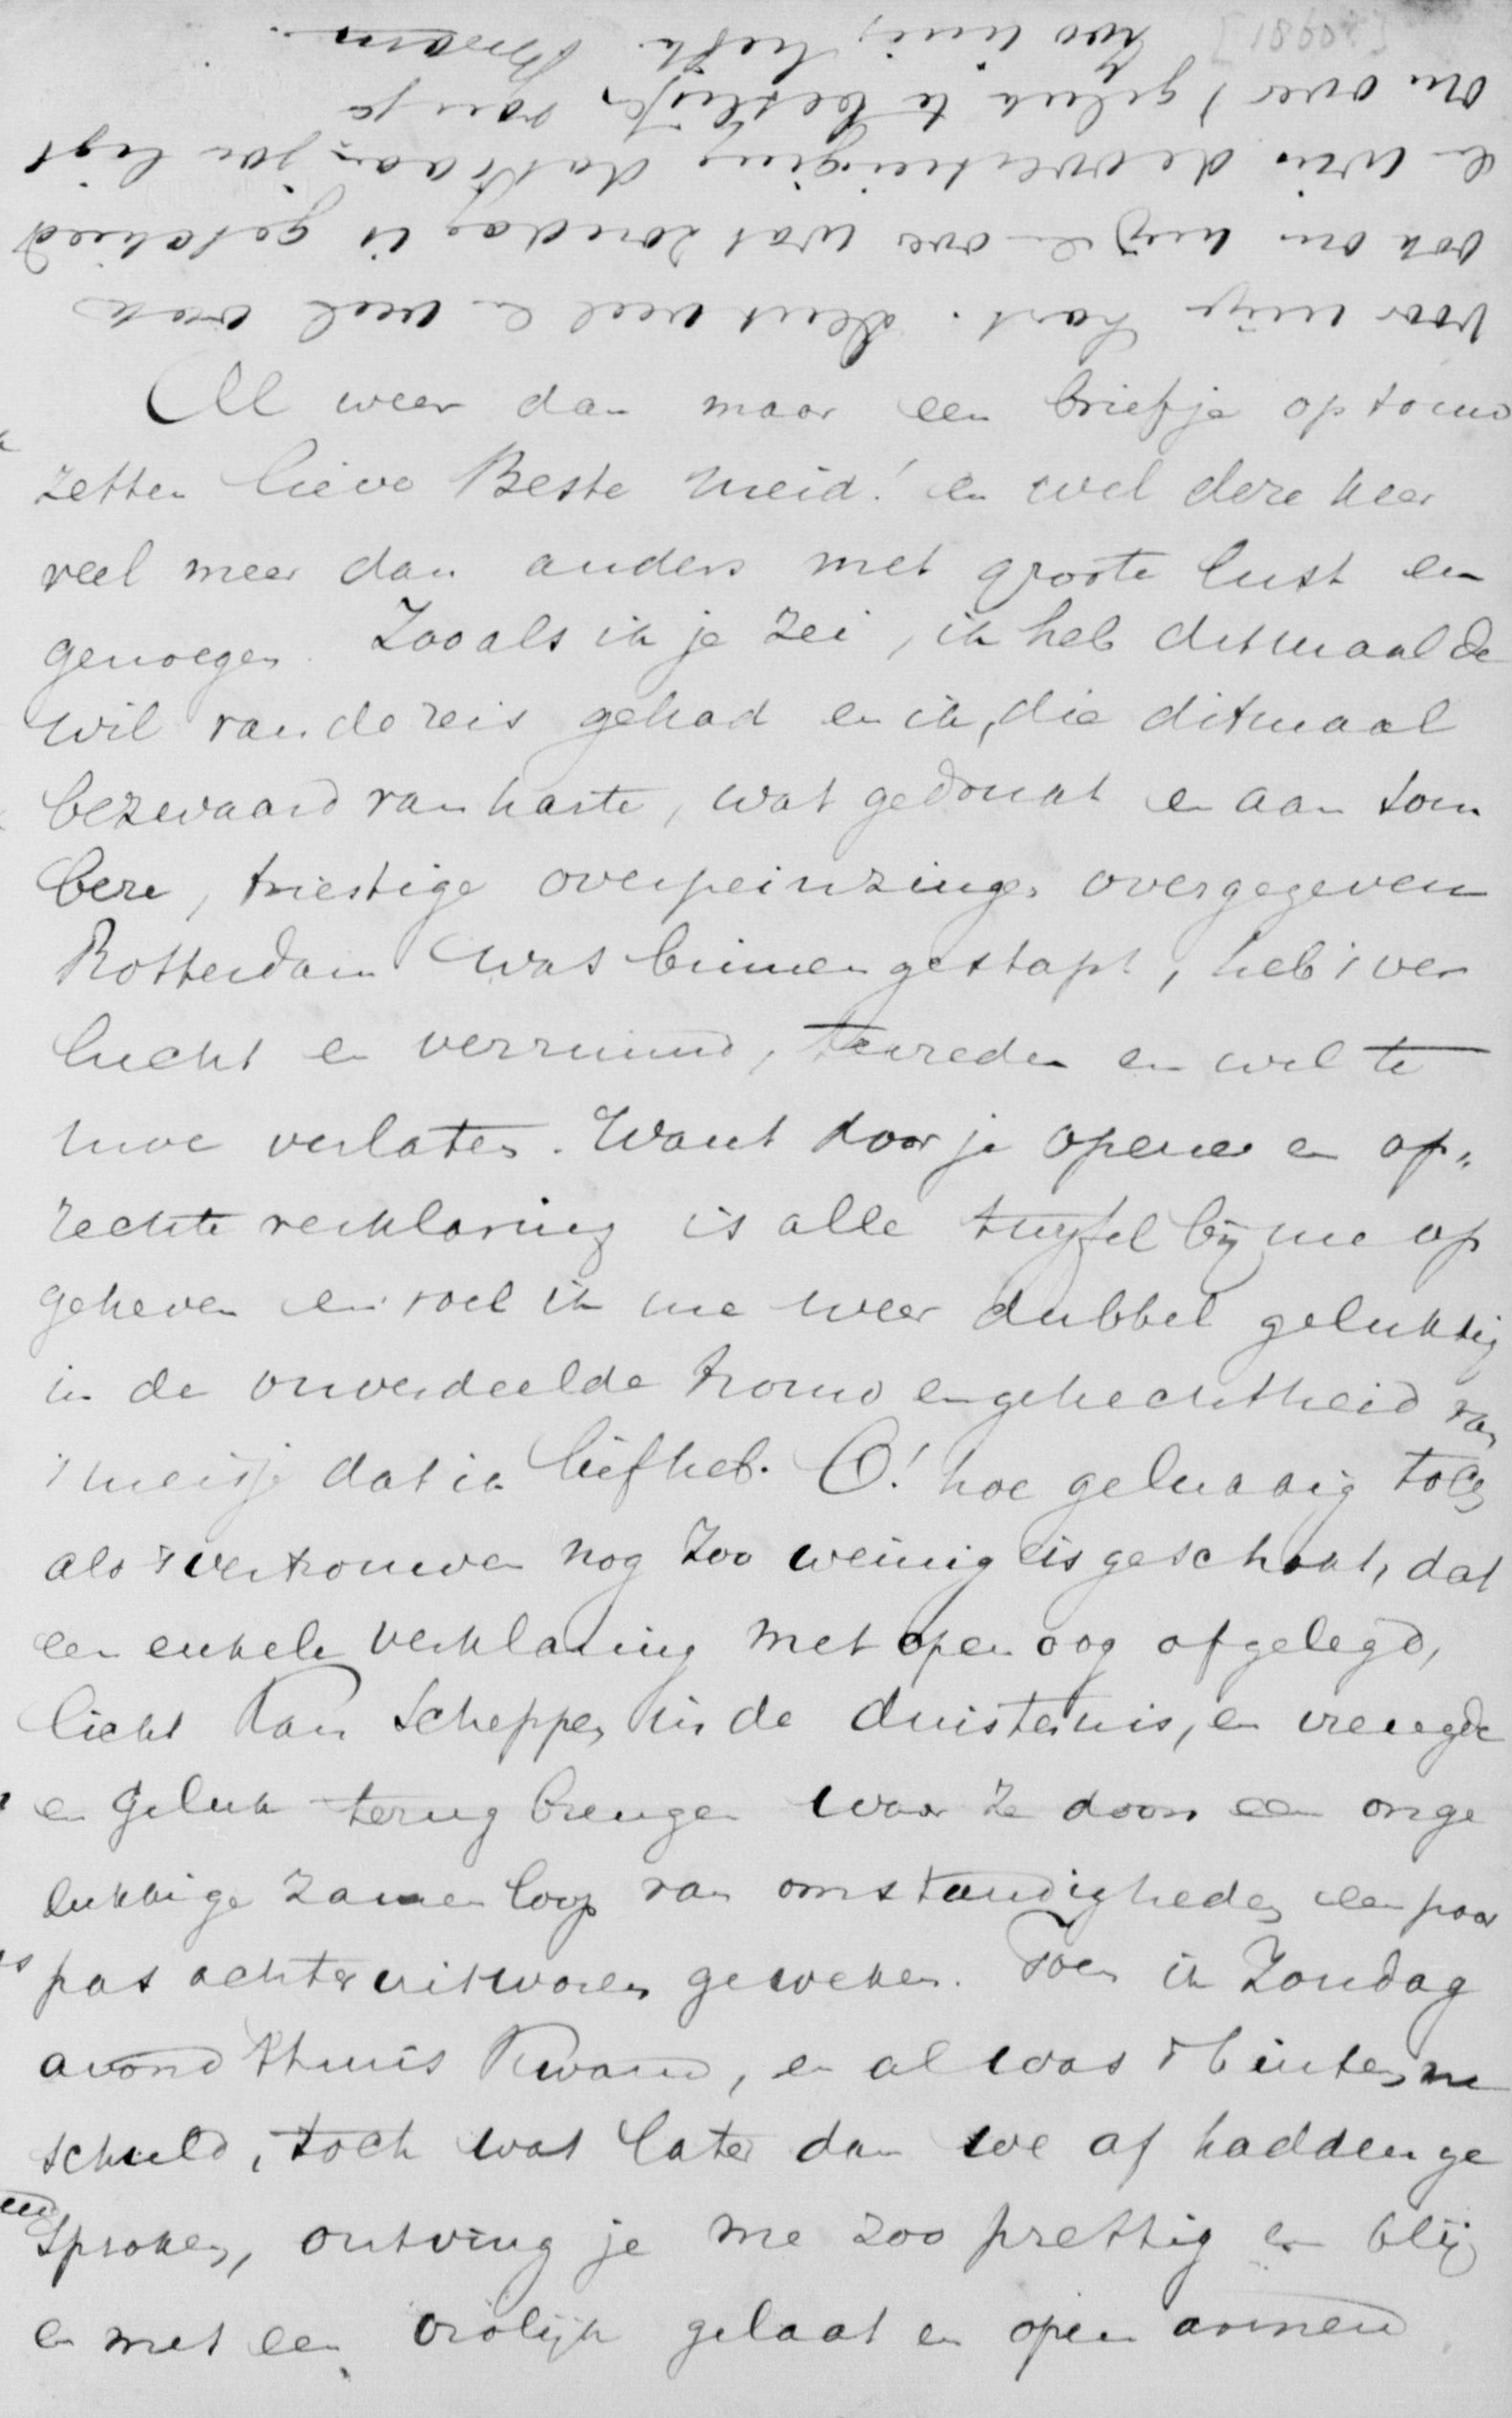 Al weer dan maar een briefje op touw
zetten lieve Beste meid! en wel deze keer
veel meer dan anders met groote lust en
genoegen. Zooals ik je zei, ik heb ditmaal de
wil van de reis gehad en ik, die ditmaal
bezwaard van harte, wat gedrukt en aan som
bere, triestige overpeinzingen overgegeven
Rotterdam was binnengestapt, heb 't ver
lucht en verruimd, tevreden en wel te
moe verlaten. Want door je open en op„
rechte verklaring is alle twijfel bij me op
geheven en voel ik me weer dubbel gelukkig
in de onverdeelde trouw en gehechtheid van
't meisje dat ik liefheb. O! hoe gelukkig toch
als 't vertrouwen nog zoo weinig is geschokt, dat
een enkele verklaring met open oog afgelegd,
licht kan scheppen in de duisternis, en vreugde
en geluk terug brengen waar ze door een onge
lukkige zamenloop van omstandigheden een paar
pas achteruit waren geweken. Toen ik Zondag
avond thuis kwam, en al was 't buiten m'n
schuld, toch wat later dan we af hadden ge
sproken, ontving je me zoo prettig en blij
en met een vrolijk gelaat en open armen
voor mijn hart. Denk veel en veel
ook om mij en over wat zondag is geschied
en win de overtuiging dat 't aan jou ligt
om over 't geluk te beslissen van je
zoo innig liefh. Bram.
[1860?]